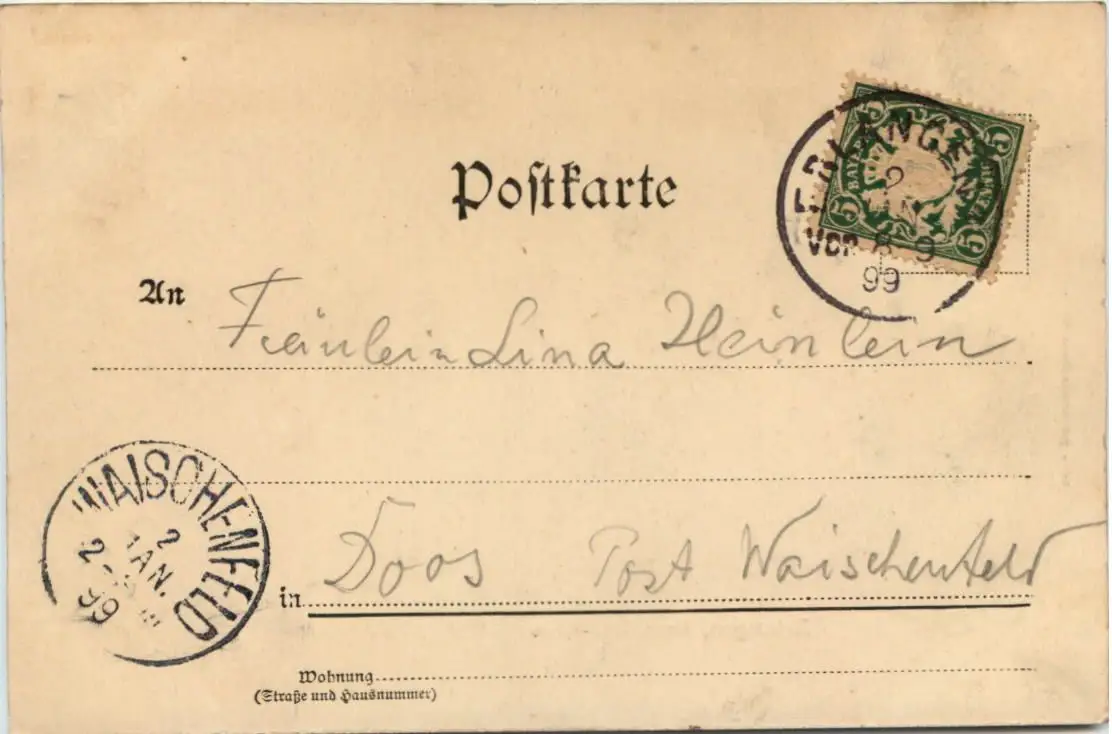 Postkarte
ERLANGEN
2
JAN.
Vor. 8-9
99
5 5
BAYERN
5 5
An Fräulein Lina Heinlein
WAISCHENFELD
2
JAN.
99
in Doos Post Waischenfeld
Wohnung
(Straße und Hausnummer)